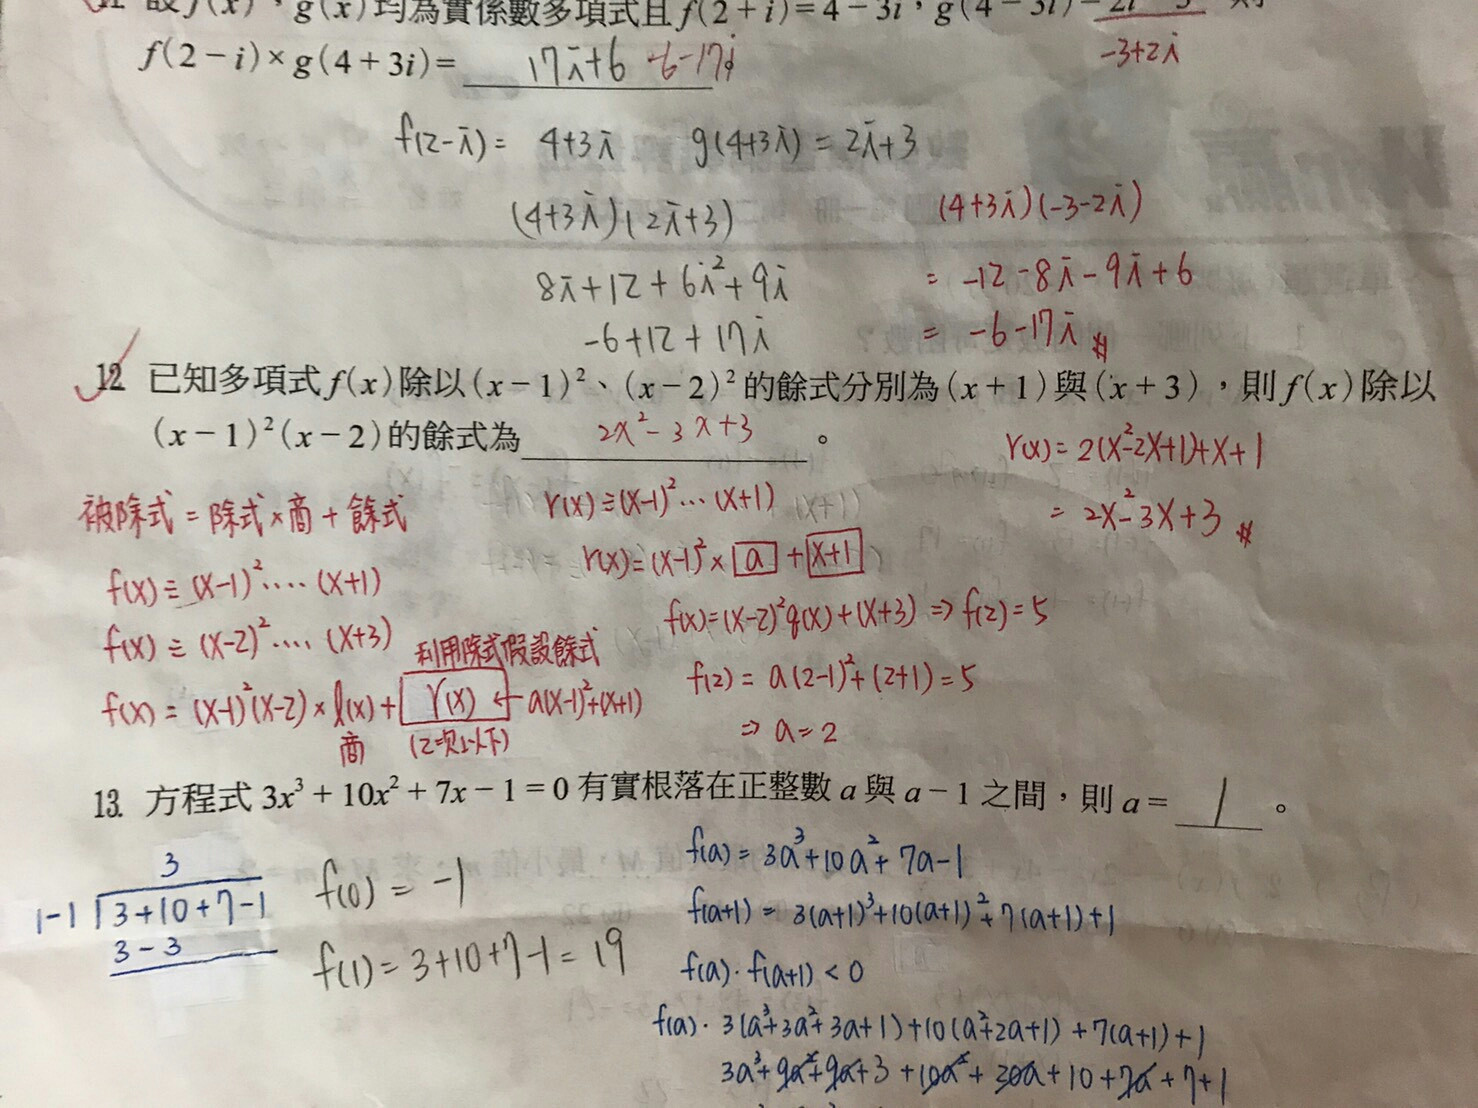 設 f(x)，g(x) 均為實係數多項式且 f(2+i)=4-3i，g(4-3i)=
-3+2i
f(2-i)×g(4+3i)= 17i+6 -6-17i
f(2-i)= 4+3i g(4+3i) = 2i+3
(4+3i)(2i+3) (4+3i)(-3-2i)
8i+12+6i²+9i = -12-8i-9i+6
-6+12+17i = -6-17i #
12 已知多項式 f(x) 除以 (x-1)²、(x-2)² 的餘式分別為 (x+1) 與 (x+3)，則 f(x) 除以
(x-1)²(x-2) 的餘式為 2x²-3x+3 。
r(x)= 2(x²-2x+1)+x+1
= 2x²-3x+3 #
被除式 = 除式×商 + 餘式
f(x) ÷ (x-1)² .... (x+1)
f(x) ÷ (x-2)² .... (x+3)
利用除式假設餘式
f(x) = (x-1)²(x-2) × l(x) + r(x) ← a(x-1)²+(x+1)
商 (2次以下)
r(x) ÷ (x-1)² ... (x+1)
r(x)= (x-1)² × a + x+1
f(x)=(x-2)²q(x)+(x+3) ⇒ f(2)=5
f(2) = a(2-1)²+(2+1)=5
⇒ a=2
13. 方程式 3x³+10x²+7x-1=0 有實根落在正整數 a 與 a-1 之間，則 a= 1 。
3
1-1 3+10+7-1
3-3
f(0) = -1
f(1)= 3+10+7-1= 19
f(a) = 3a³+10a²+7a-1
f(a+1) = 3(a+1)³+10(a+1)²+7(a+1)+1
f(a)·f(a+1) < 0
f(a)· 3(a³+3a²+3a+1)+10(a²+2a+1)+7(a+1)+1
3a³+9a²+9a+3+10a²+20a+10+7a+7+1